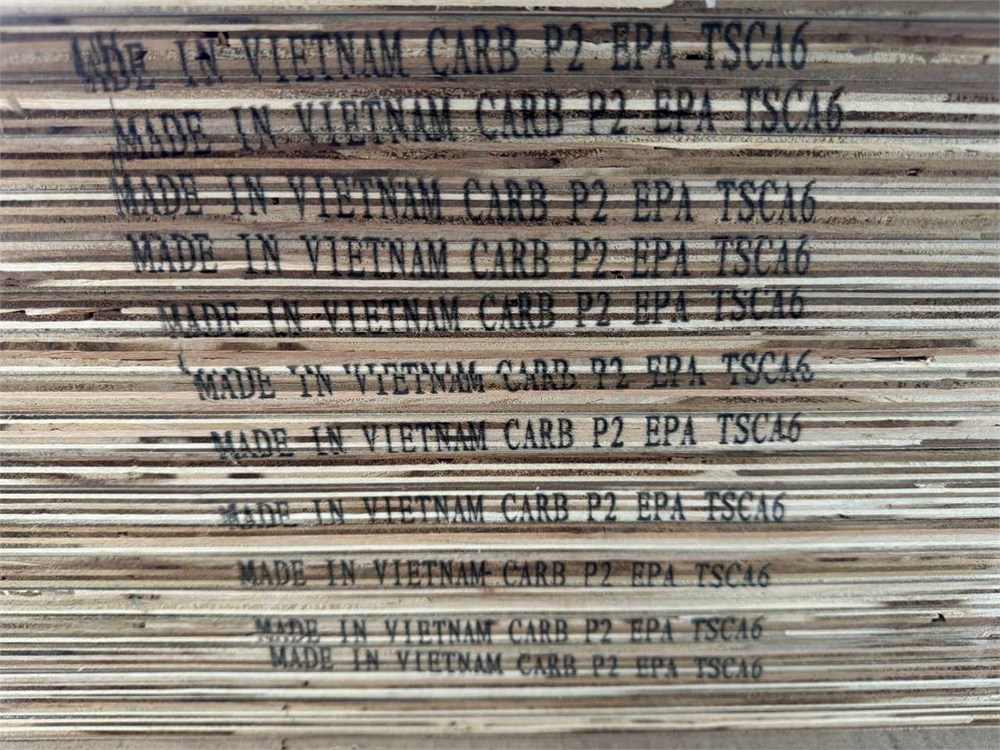 MADE IN VIETNAM CARB P2 EPA TSCA6
MADE IN VIETNAM CARB P2 EPA TSCA6
MADE IN VIETNAM CARB P2 EPA TSCA6
MADE IN VIETNAM CARB P2 EPA TSCA6
MADE IN VIETNAM CARB P2 EPA TSCA6
MADE IN VIETNAM CARB P2 EPA TSCA6
MADE IN VIETNAM CARB P2 EPA TSCA6
MADE IN VIETNAM CARB P2 EPA TSCA6
MADE IN VIETNAM CARB P2 EPA TSCA6
MADE IN VIETNAM CARB P2 EPA TSCA6
MADE IN VIETNAM CARB P2 EPA TSCA6